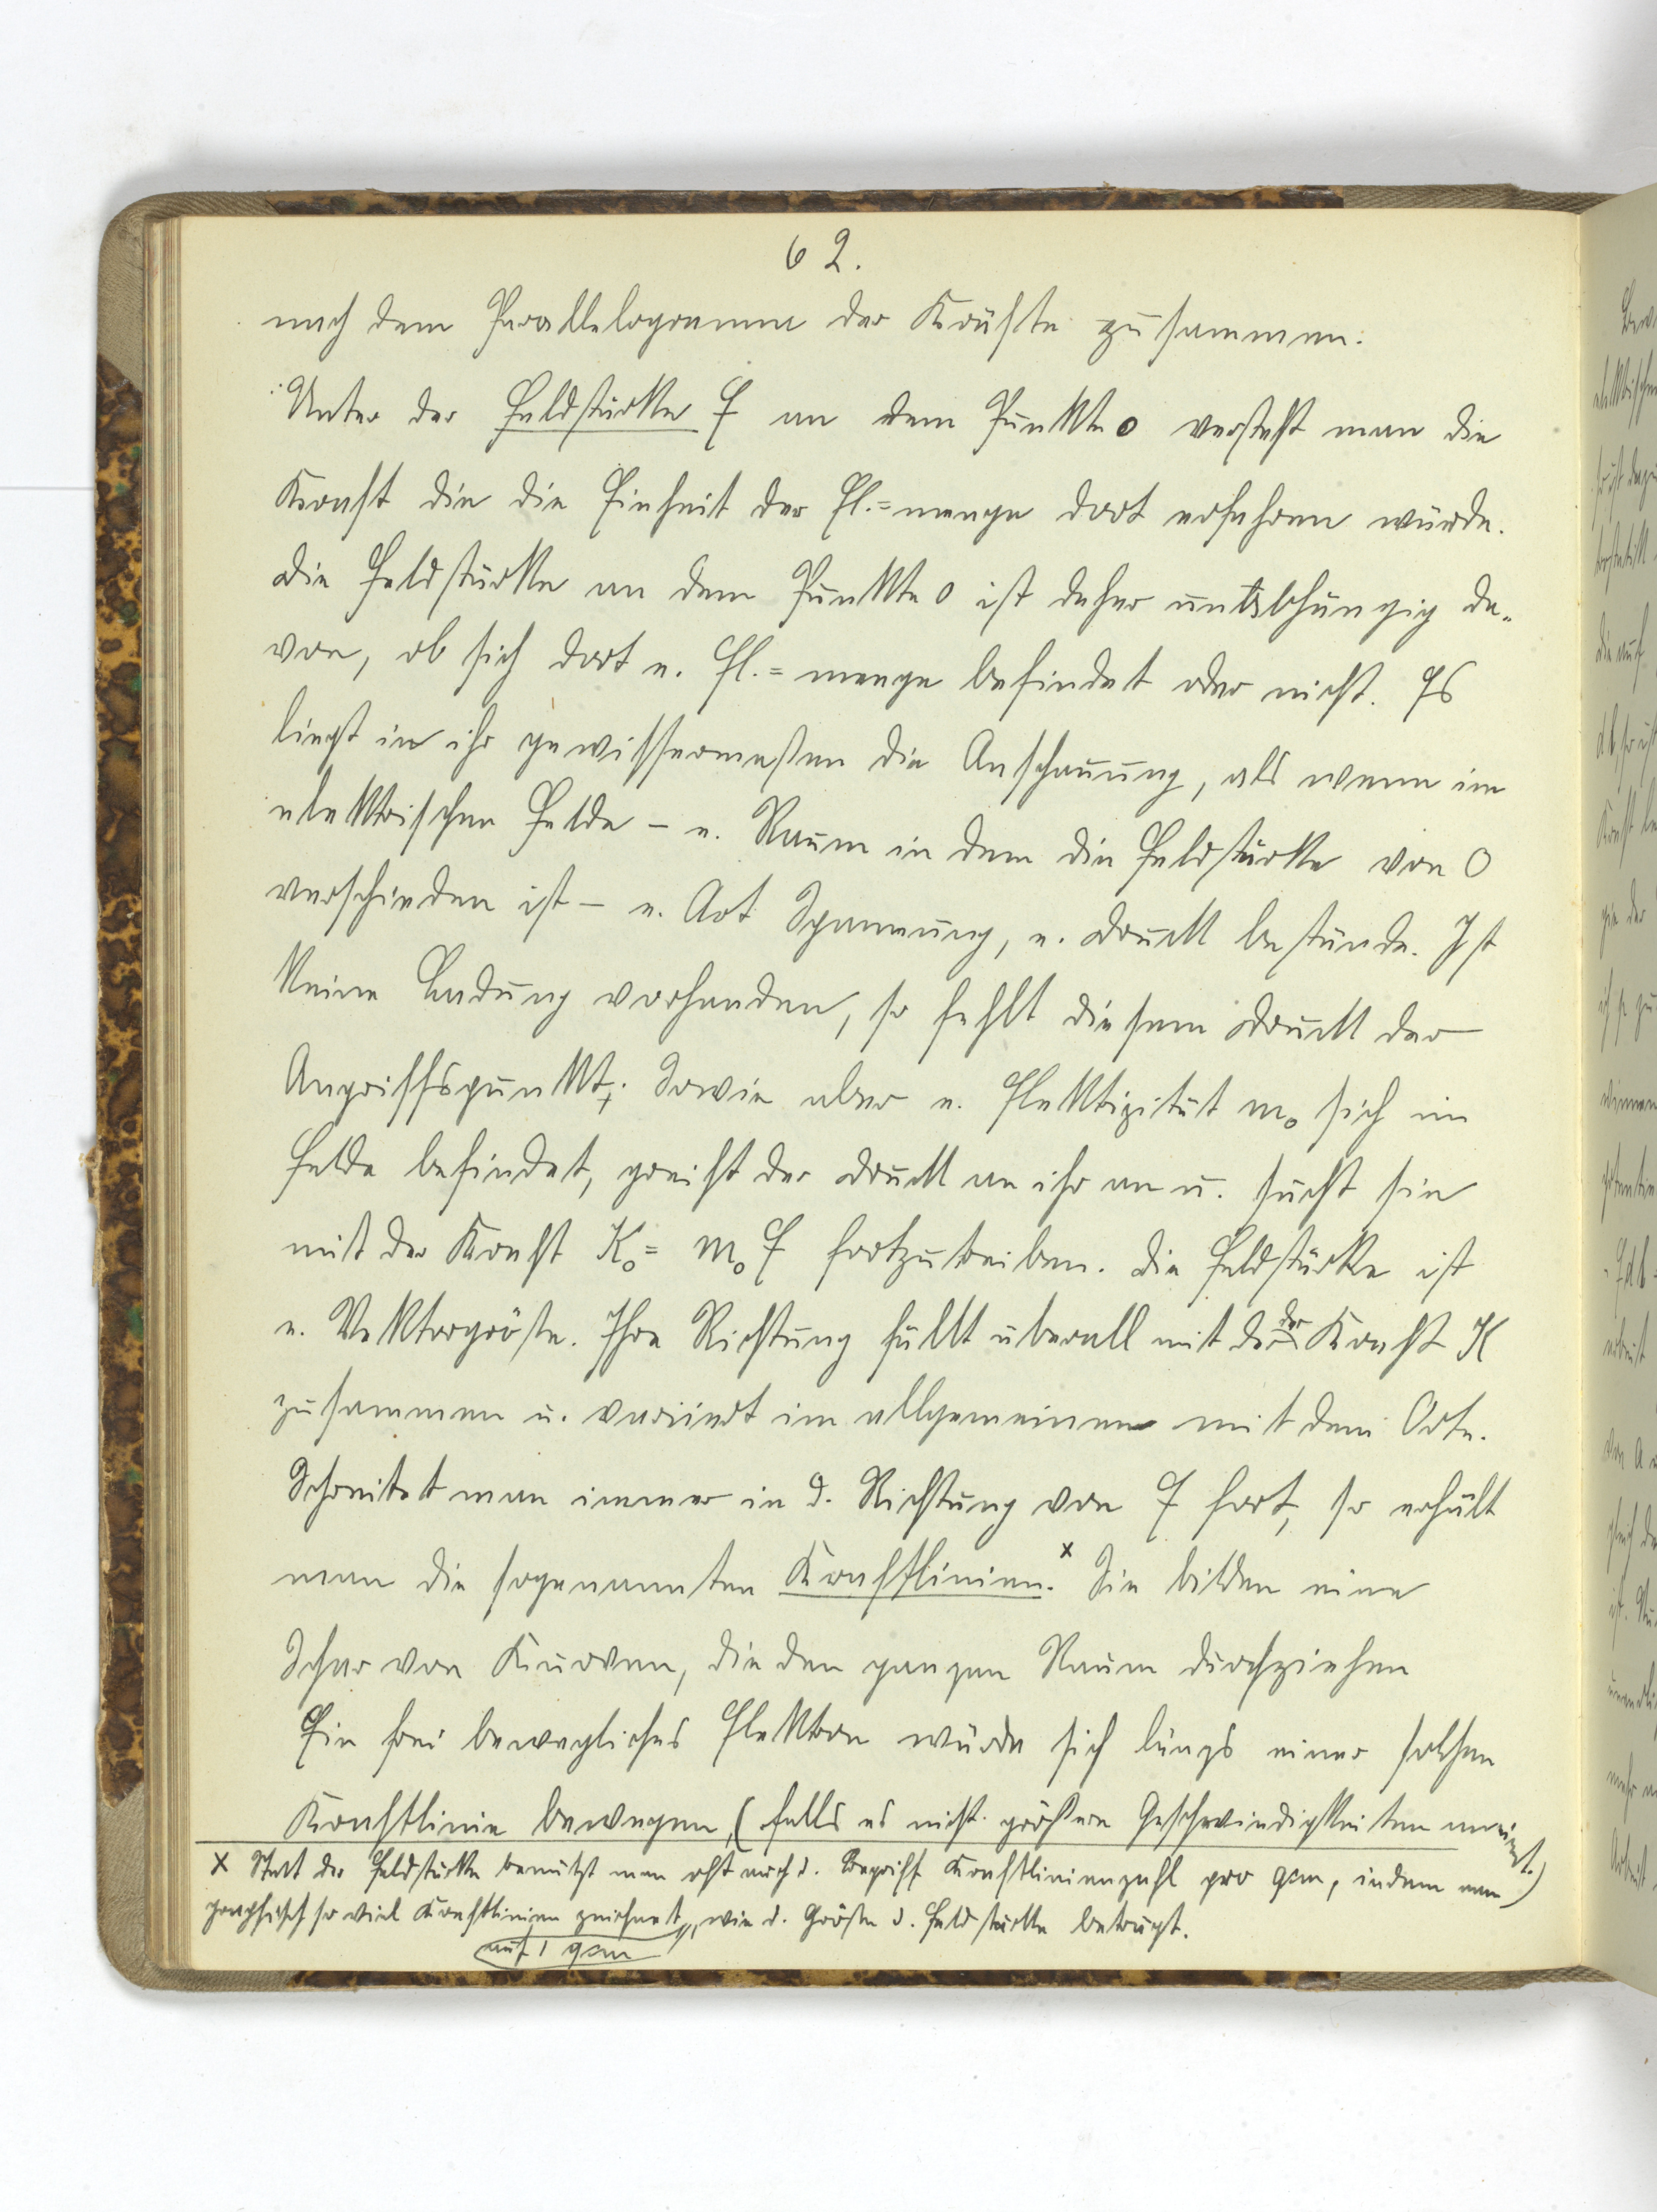 62.
nach dem Parallelogramm der Kräfte zusammen.
Unter der Feldstärke E an dem Punkte o versteht man die
Kraft die die Einheit der El.=menge dort erfahren würde.
Die Feldstärke an dem Punkte o ist daher unabhängig da-
von, ob sich dort e. El.=menge befindet oder nicht. Es
liegt in ihr gewissermaßen die Anschauung, als wenn im
elektrischen Felde – e. Raum in dem die Feldstärke von 0
verschieden ist – e. Art Spannung, e. Druck bestände. Ist
keine Ladung vorhanden, so fehlt diesem Druck der
Angriffspunkt; Sowie aber e. Elektrizität m₀ sich im
Felde befindet, greift der Druck an ihr an u. sucht sie
mit der Kraft K₀ = m₀ E fortzutreiben. Die Feldstärke ist
e. Vektorgröße. Ihre Richtung fällt überall mit der Kraft K
zusammen u. variiert im allgemeinen mit dem Orte.
Schreitet man immer in d. Richtung von E fort, so erhält
man die sogenannten Kraftlinien.x Sie bilden eine
Schar von Kurven, die den ganzen Raum durchziehen
Ein frei bewegliches Elektron würde sich längs einer solchen
Kraftlinie bewegen, (falls es nicht größere Geschwindigkeiten annimmt.)
x Statt der Feldstärke benützt man oft auch d. Begriff Kraftlinienzahl pro qcm, indem man
graphisch so viel Kraftlinien zeichnet, wie d. Größe d. Feldstärke beträgt.
auf 1 qcm